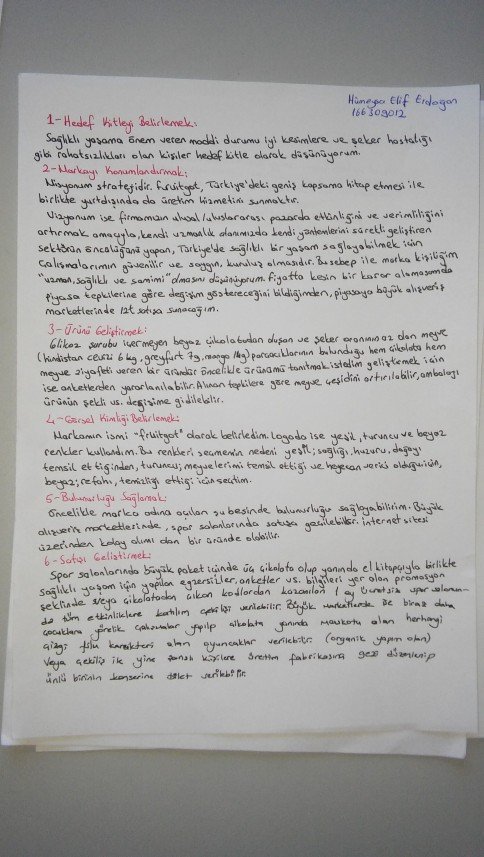 Hümeysa Elif Erdoğan
166309012
1-Hedef Kitleyi Belirlemek:
Sağlıklı yaşama önem veren maddi durumu iyi kesimlere ve şeker hastalığı
gibi rahatsızlıkları olan kişiler hedef kitle olarak düşünüyorum.
2-Markayı Konumlandırmak;
Misyonum stratejidir. Fruitgot, Türkiye'deki geniş kapsama hitap etmesi ile
birlikte yurtdışında da üretim hizmetini sunmaktır.
Vizyonum ise firmamızın ulusal/uluslararası pazarda etkinliğini ve verimliliğini
artırmak amacıyla, kendi uzmanlık alanımızda kendi yöntemlerini sürekli geliştiren
sektörün öncülüğünü yapan, Türkiye'de sağlıklı bir yaşam sağlayabilmek için
çalışmalarımın güvenilir ve saygın, kuruluş olmasıdır. Bu sebep ile marka kişiliğim
"uzman, sağlıklı ve samimi" olmasını düşünüyorum. Fiyatta kesin bir karar alamasamda
piyasa tepkilerine göre değişim göstereceğini bildiğimden, piyasaya büyük alışveriş
marketlerinde 12₺ satışa sunacağım.
3-Ürünü Geliştirmek:
Glikoz şurubu içermeyen beyaz çikolatadan oluşan ve şeker oranının az olan meyve
(hindistan cevizi 6 kg, greyfurt 7g, mango 1kg) parçacıklarının bulunduğu hem çikolata hem
meyve ziyafeti veren bir üründür. Öncelikle ürünümü tanıtmak istedim geliştirmek için
ise anketlerden yararlanılabilir. Alınan tepkilere göre meyve çeşidini artırılabilir, ambalajı
ürünün şekli vs. değişime gidilebilir.
4-Görsel Kimliği Belirlemek:
Markamın ismi "fruitgot" olarak belirledim. Logoda ise yeşil, turuncu ve beyaz
renkler kullandım. Bu renkleri seçmemin nedeni yeşil; sağlığı, huzuru, doğayı
temsil ettiğinden, turuncu; meyvelerimi temsil ettiği ve heyecan verici olduğu için,
beyaz; refahı, temizliği ettiği için seçtim.
5-Bulunurluğu Sağlamak:
Öncelikle marka adına açılan şubesinde bulunurluğu sağlayabilirim. Büyük
alışveriş marketlerinde, spor salonlarında satışa geçilebilir. internet sitesi
üzerinden kolay alımı olan bir üründe olabilir.
6-Satışı Geliştirmek:
Spor salonlarında büyük paket içinde üç çikolata olup yanında el kitapçıyla birlikte
sağlıklı yaşam için yapılan egzersizler, anketler vs. bilgileri yer alan promosyon
şeklinde veya çikolatadan çıkan kodlardan kazanılan 1 ay ücretsiz spor salonun-
da tüm etkinliklere katılım çekilişi verilebilir. Büyük marketlerde ise biraz daha
çocuklara yönelik çalışmalar yapılıp çikolata yanında maskotu olan herhangi
çizgi film karakteri olan oyuncaklar verilebilir. (organik yapım olan)
veya çekiliş ile yine şanslı kişilere üretim fabrikasına gezi düzenlenip
ünlü birinin konserine bilet verilebilir.